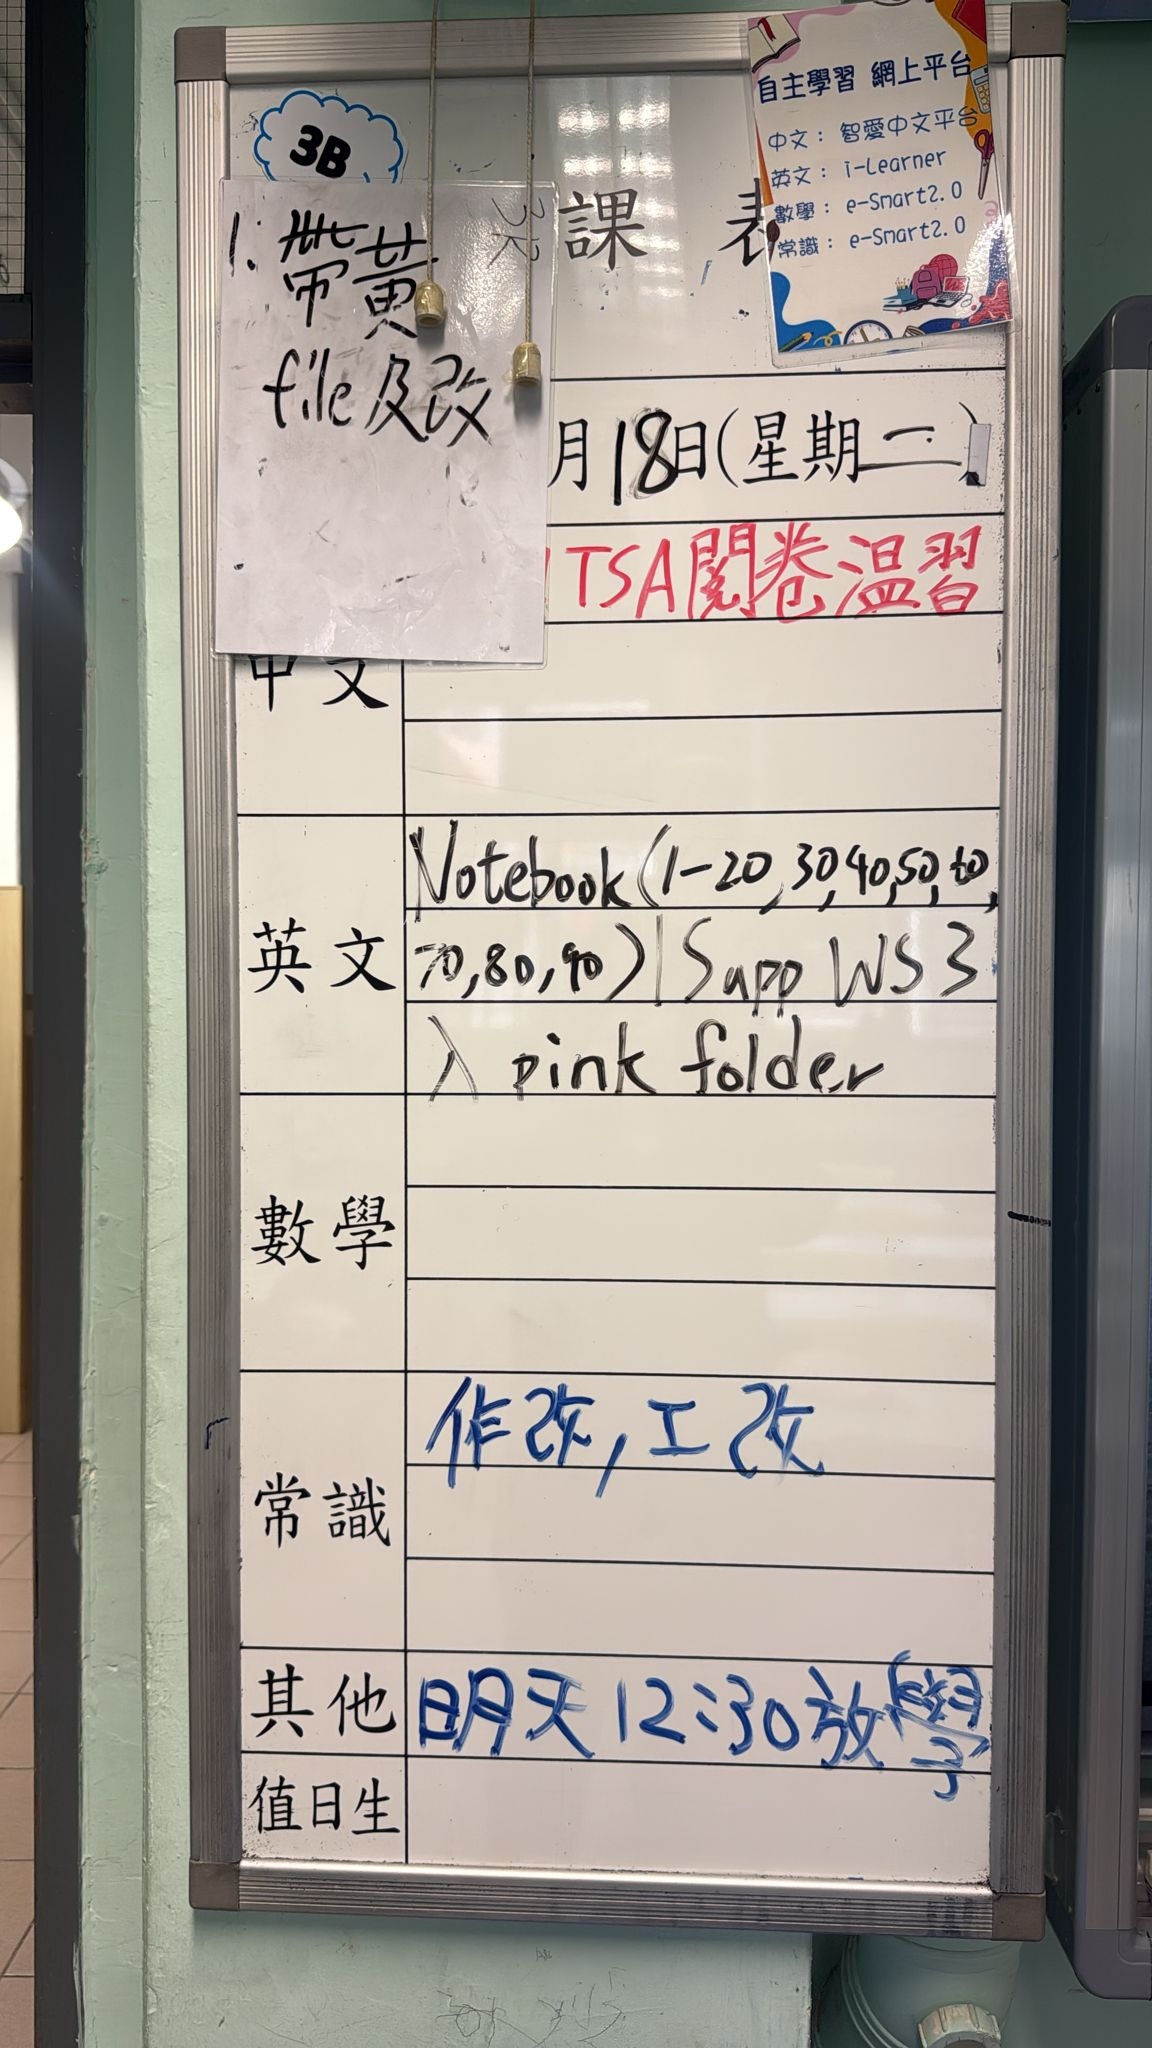 3B
自主學習 網上平台
中文： 智愛中文平台
英文： i-Learner
數學： e-Smart2.0
常識： e-Smart2.0
課 表
1. 帶黃
file及改
月18日(星期二)
TSA閱卷溫習
中文
英文
Notebook (1-20, 30, 40, 50, 60,
70, 80, 90) | Supp WS 3
入 pink folder
數學
常識
作改, 工改
其他
明天12:30放學
值日生